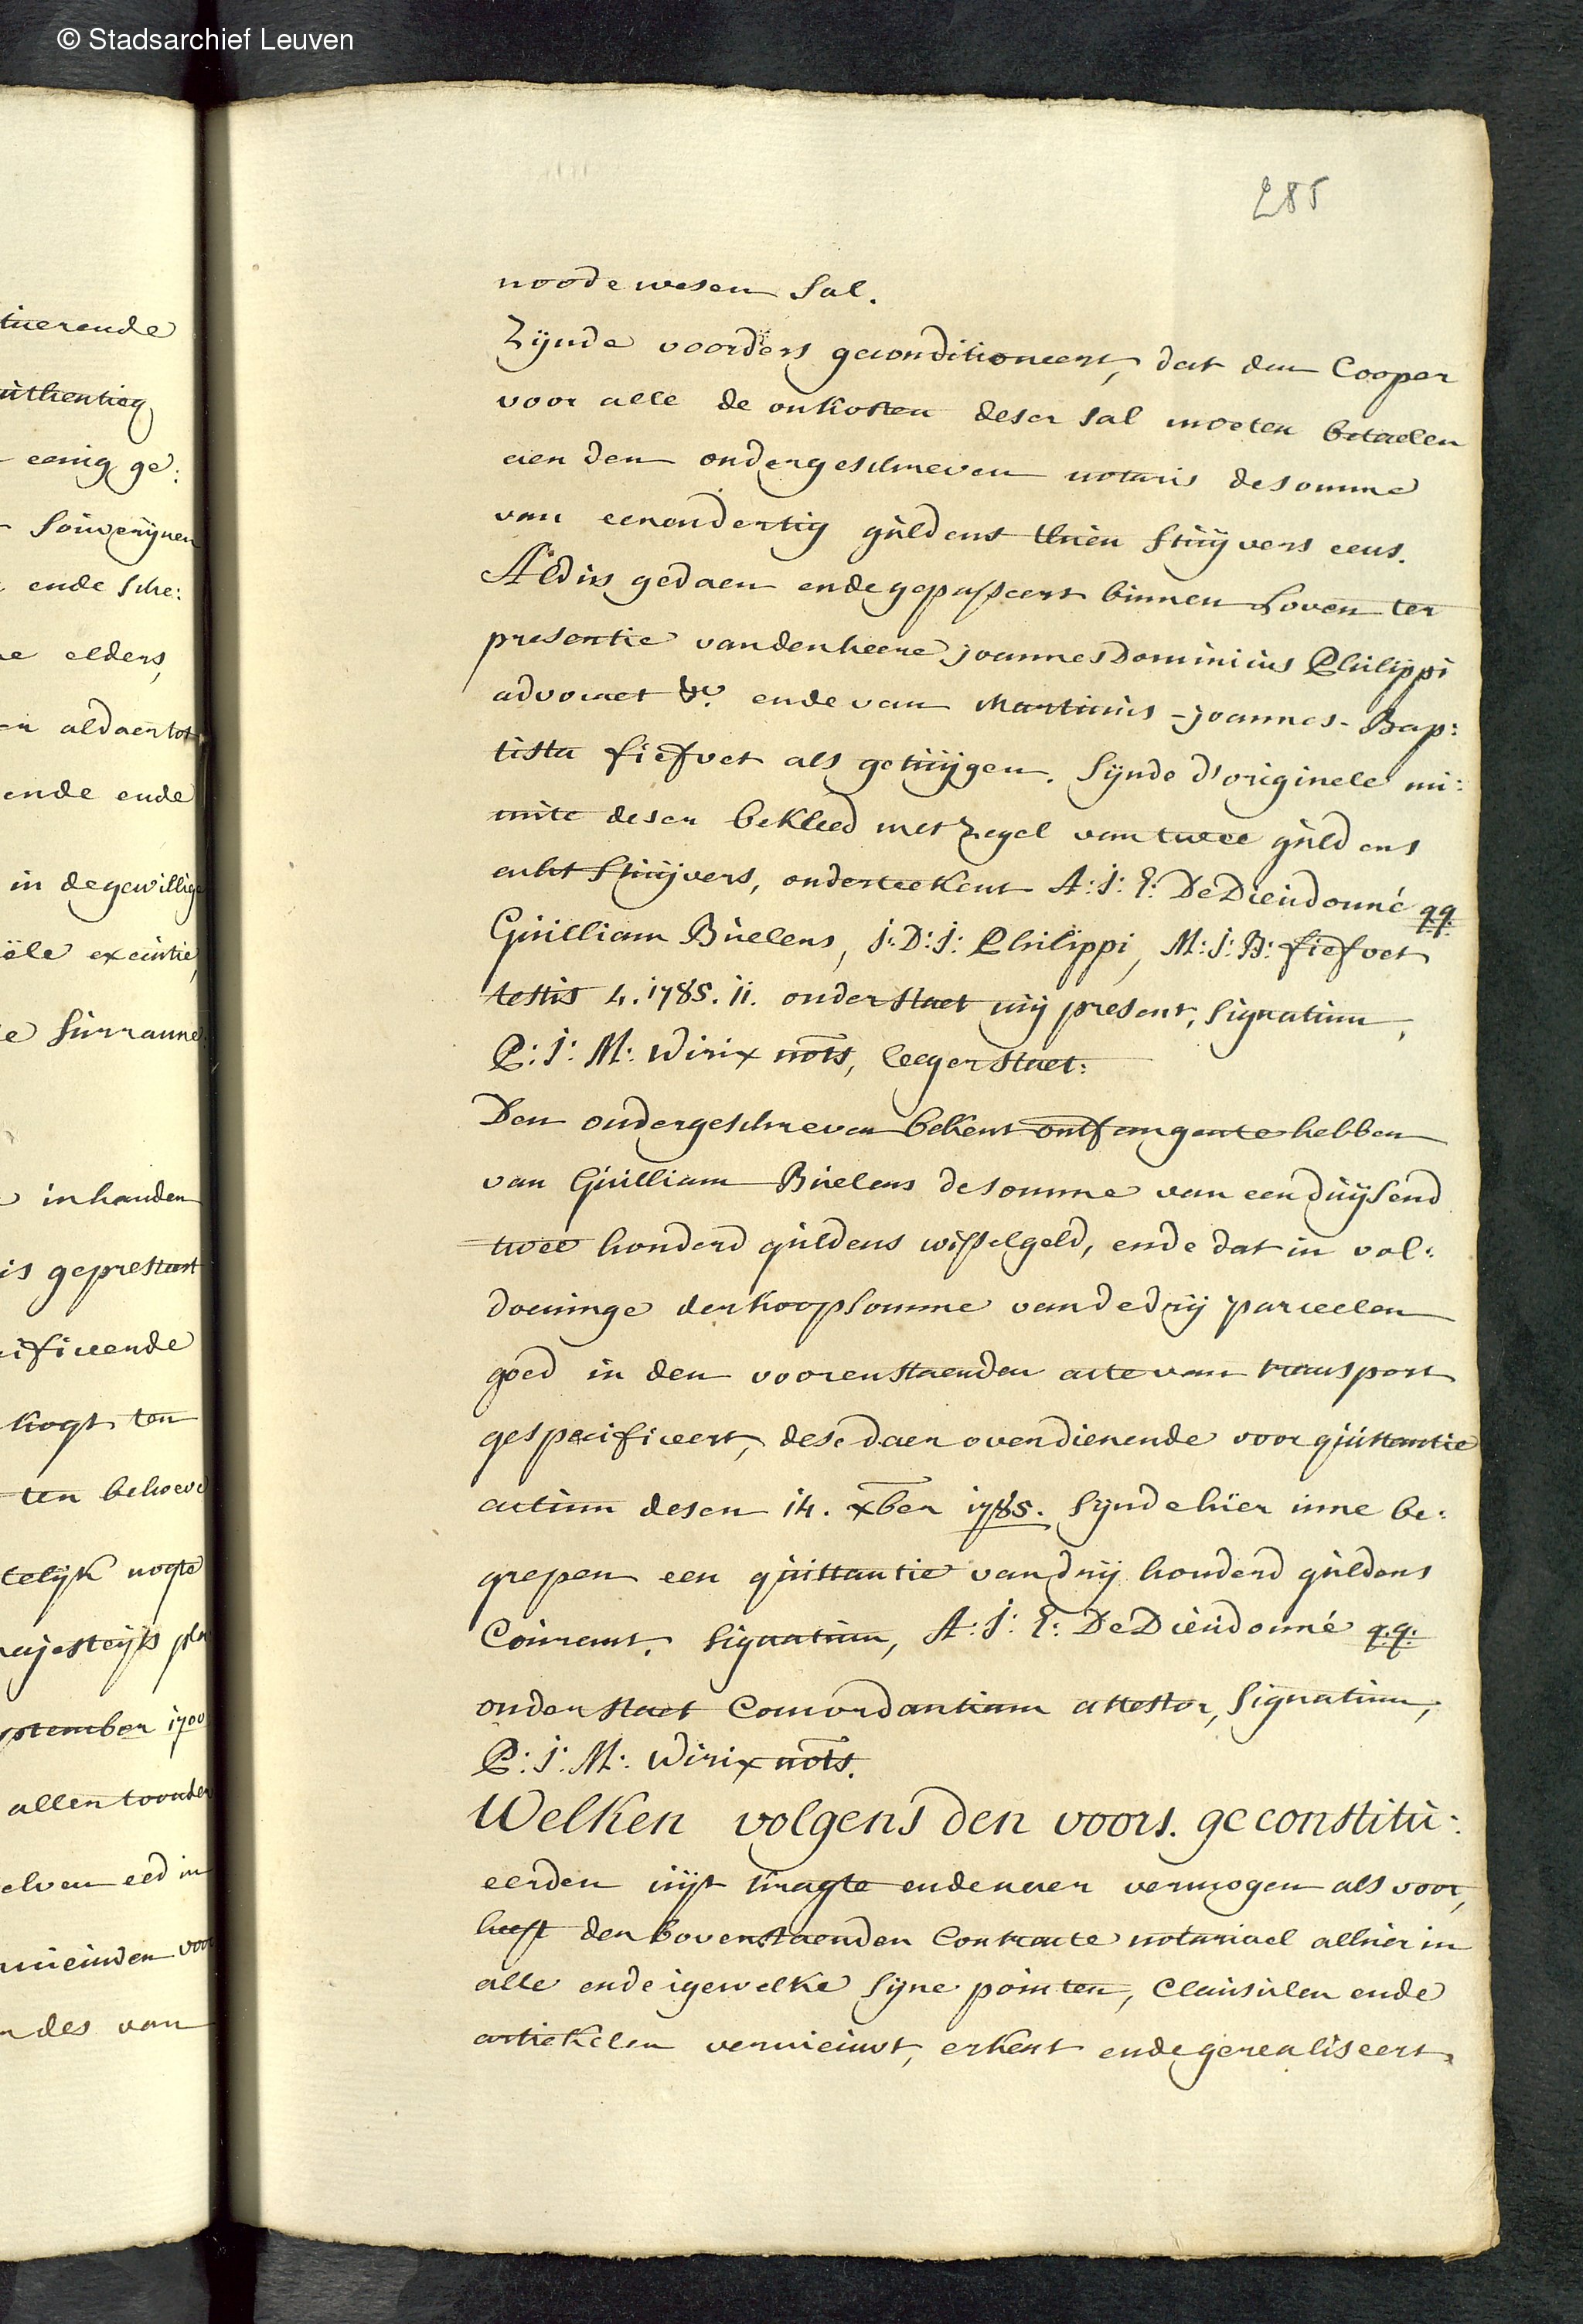 © Stadsarchief Leuven
tuerende
uthentieq
eenig ge:
souverijnen
ende sche:
elders,
aldaer tot
ende ende
in de gewillige
executie,
surranne
in handen
is gepresteert
ificeende
kogt ten
ten behoeve
telijk nogte
majesteijts pla
ptember 1700
allen toonder
elven eed in
voor
des van
285
noode wesen sal.
Zijnde voorders geconditioneert, dat den Cooper
voor alle de onkosten deser sal moeten betaelen
aen den ondergeschreven notaris de somme
van eenendertig guldens thien stuijvers eens.
Aldus gedaen ende gepasseert binnen Loven ter
presentie vanden heere joannes Dominicus Philippi
advocaet &c. ende van Martinus-joannes-Bap:
tista fiefvet als getuijgen. Sijnde d'originele mi:
nute deser bekleed met zegel van twee guldens
acht stuijvers, onderteekent A: J: E: De Dieudonné q.q.
Guilliam Buelens, J: D: J: Philippi, M: J: B: fiefvet
testis 4. 1785. 11. onderstaet mij present, signatum,
P: J: M: Wirix nots, leeger staet:
Den ondergeschreven bekent ontfangen te hebben
van Guilliam Buelens de somme van een duijsend
twee honderd guldens wisselgeld, ende dat in vol:
doeninge der koopsomme van de drij parceelen
goed in den voorenstaenden acte van transport
gespecificeert, dese daer over dienende voor quittantie
actum desen 14. xber 1785. Sijnde hier inne be:
grepen een quittantie van drij honderd guldens
Courant. signatum, A: J: E: De Dieudonné q.q.
onder staet Concordantiam attestor, signatum,
P: J: M: Wirix nots.
Welken volgens den voors. geconstitu:
eerden uijt kragte ende naer vermogen als voor,
heeft den bovenstaenden Contracte notariael alhier in
alle ende igewelke sijne pointen, Clausulen ende
artiekelen vernieuwt, erkent ende gerealiseert.